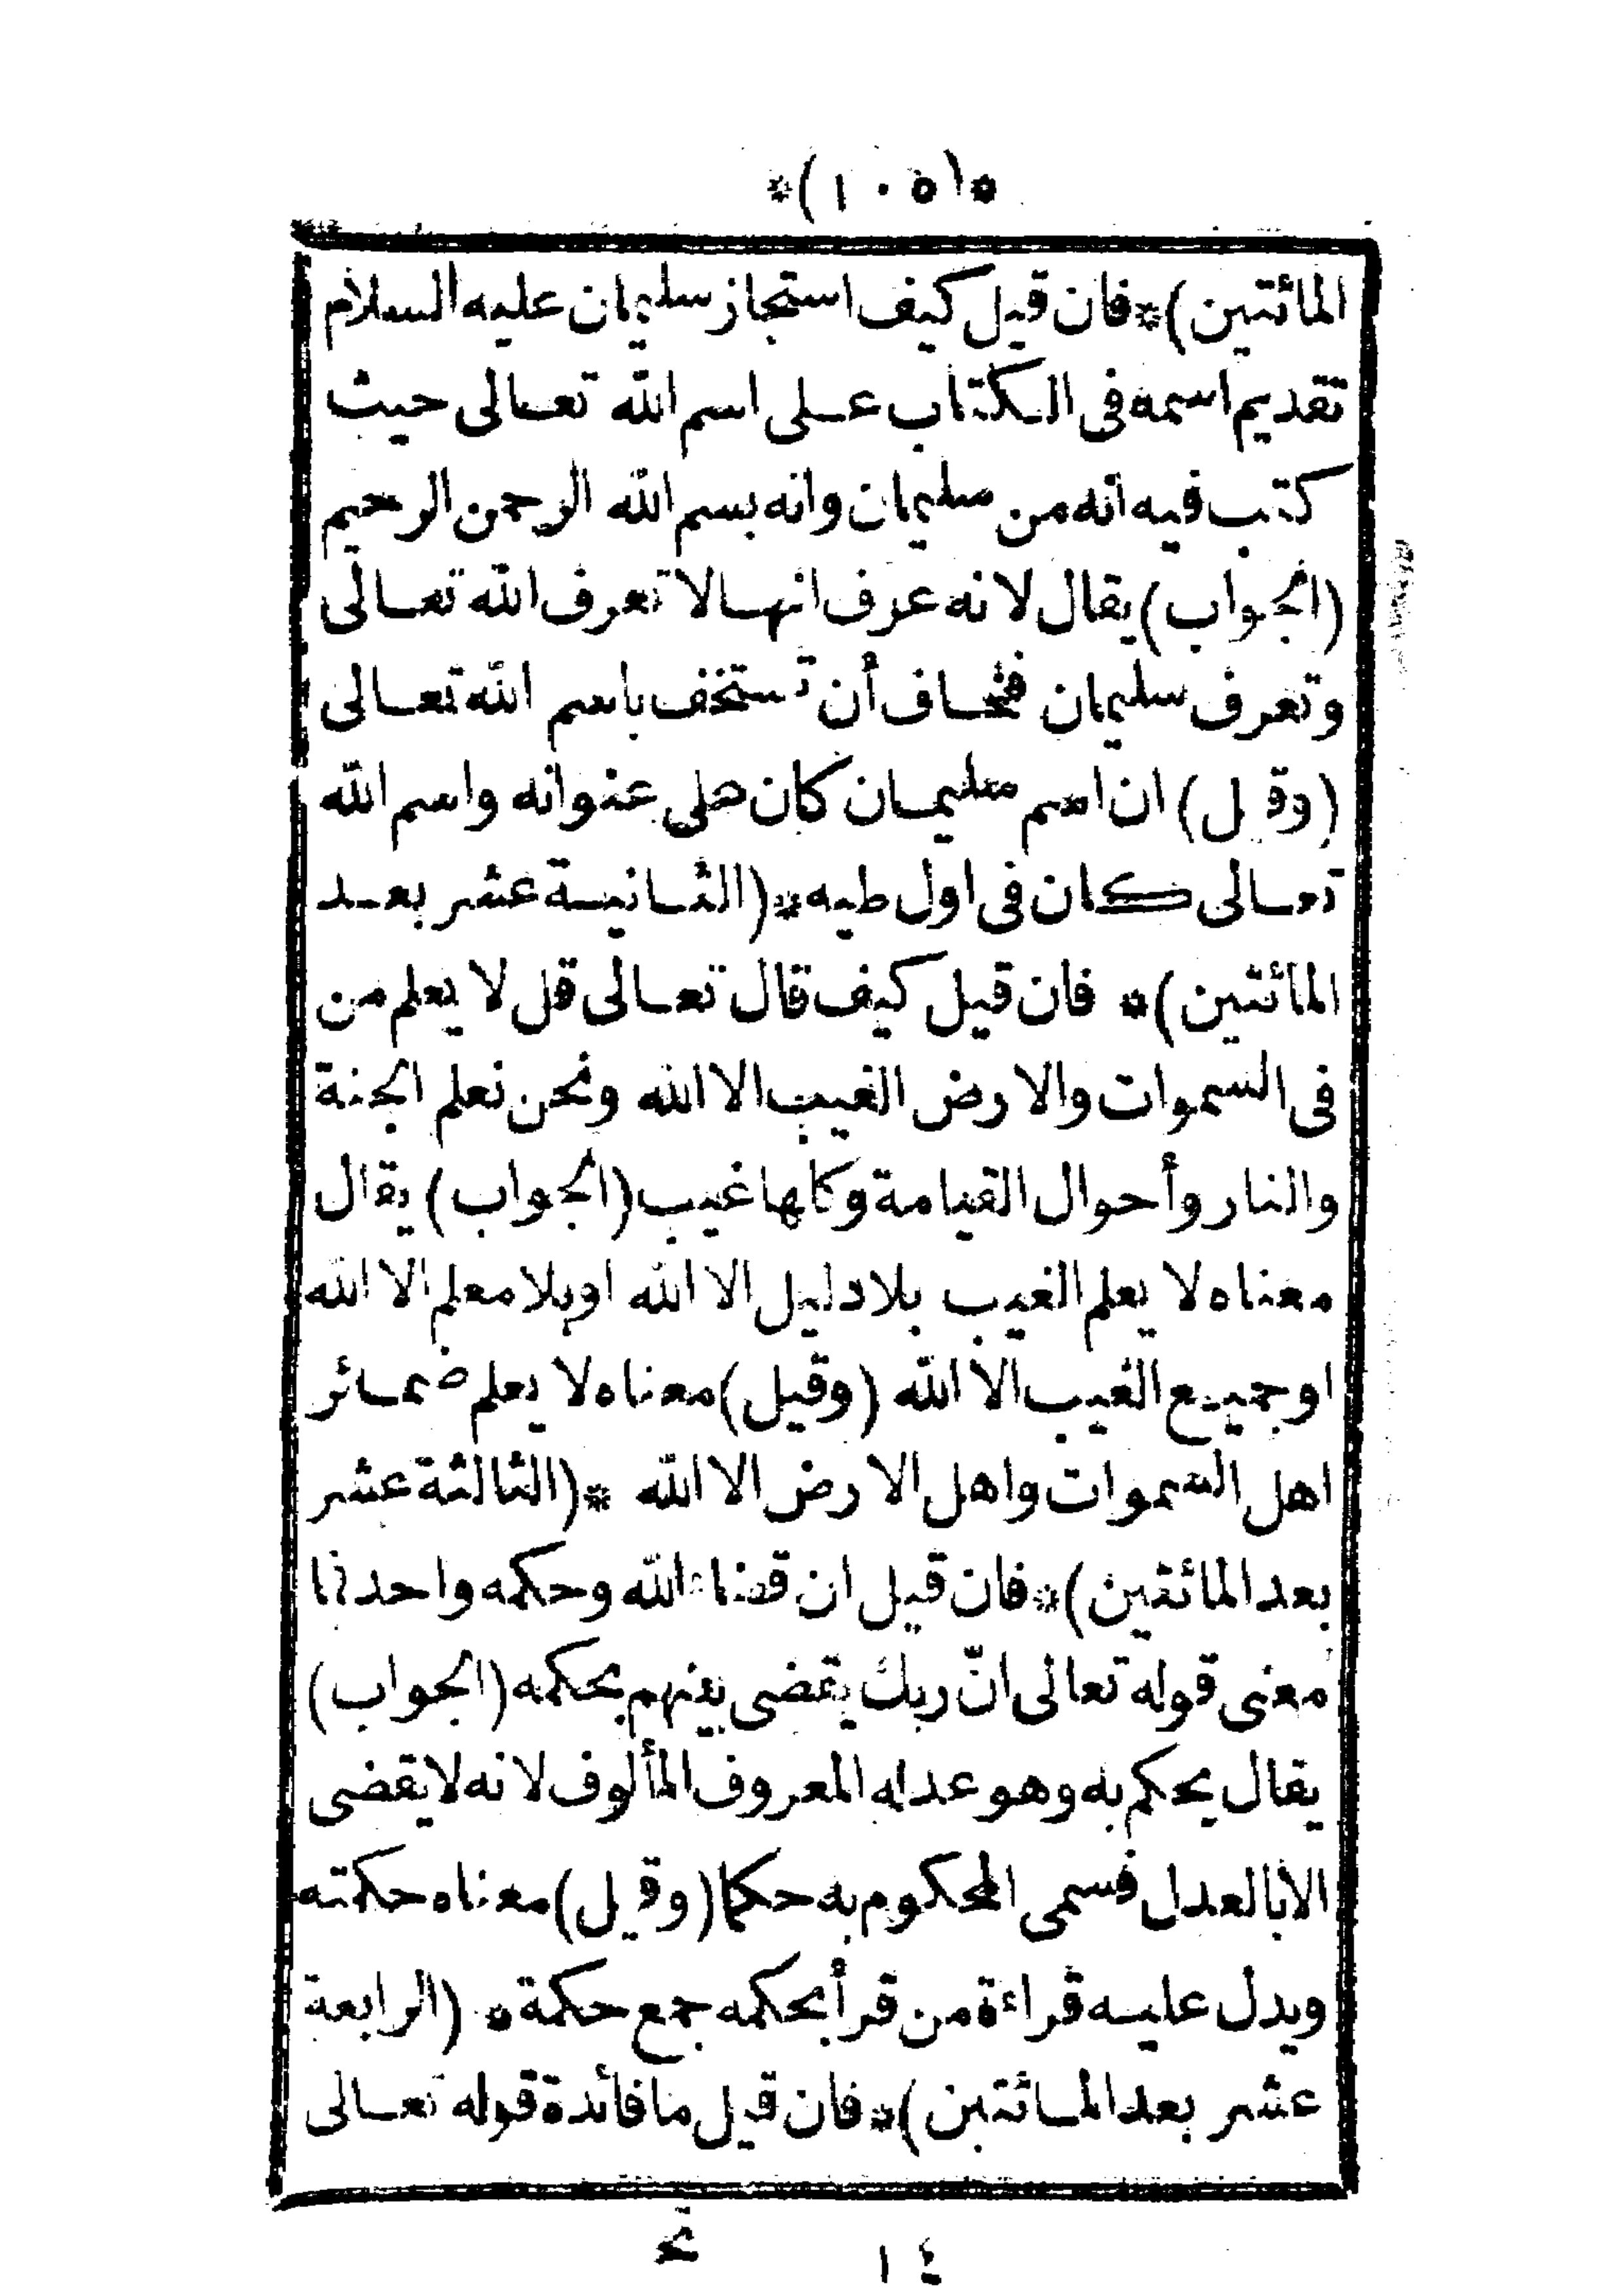 *(١٠٥)*
المائتين)*فان قيل كيف استجاز سليمان عليه السلام
تقديم اسمه فى الكتاب على اسم الله تعالى حيث
كتب فيه انه من سليمان وانه بسم الله الرحمن الرحيم
(الجواب) يقال لانه عرف انها لا تعرف الله تعالى
وتعرف سليمان فخاف أن تستخف باسم الله تعالى
(وقيل) ان اسم سليمان كان على عنوانه واسم الله
تعالى كان فى اول طيه*(الثانية عشر بعد
المائتين)* فان قيل كيف قال تعالى قل لا يعلم من
فى السموات والارض الغيب الا الله ونحن نعلم الجنة
والنار وأحوال القيامة وكلها غيب (الجواب) يقال
معناه لا يعلم الغيب بلا دليل الا الله او بلا معلم الا الله
او جميع الغيب الا الله (وقيل) معناه لا يعلم ضمائر
اهل السموات واهل الارض الا الله *(الثالثة عشر
بعد المائتين)*فان قيل ان قضاء الله وحكمه واحد فا
معنى قوله تعالى انّ ربك يقضى بينهم بحكمه (الجواب)
يقال يحكم به وهو عدله المعروف المألوف لانه لا يقضى
الا بالعدل فسمى المحكوم به حكما (وقيل) معناه حكمته
ويدل عليه قراءة من قرأ بحكمه جمع حكمة * (الرابعة
عشر بعد المائتين)*فان قيل ما فائدة قوله تعالى
١٤ تح